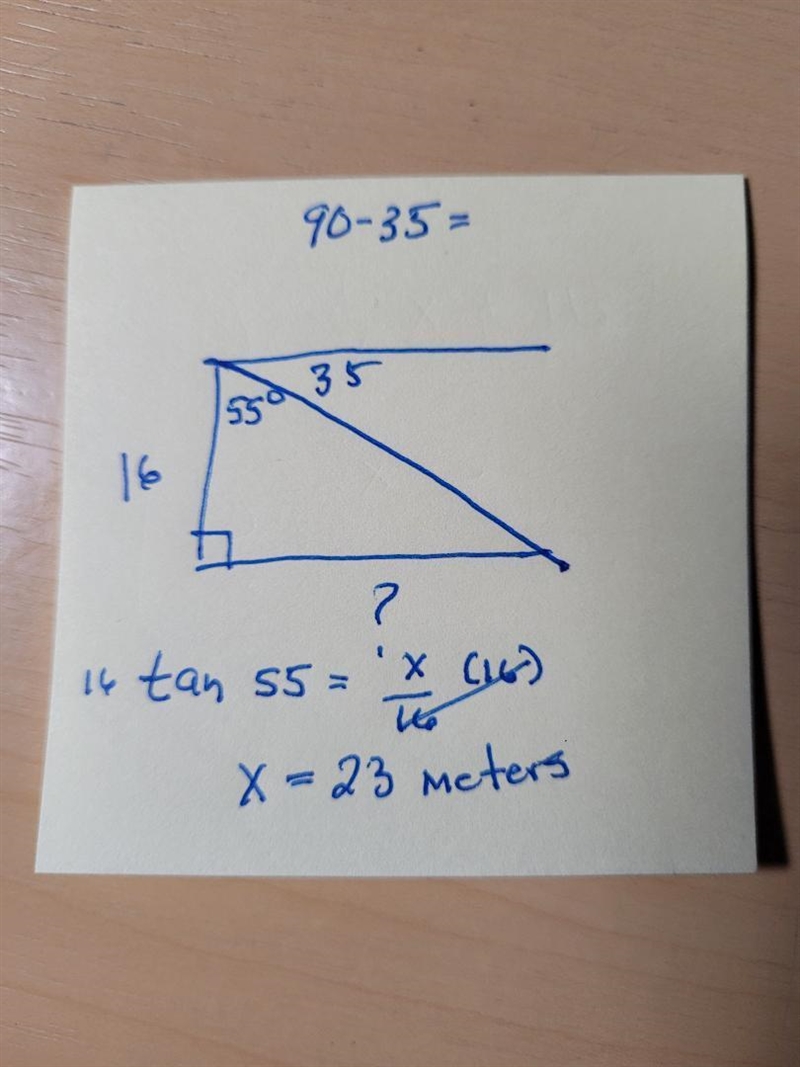 90-35=
35
55°
16
?
16 tan 55 = x/16 (16)
x = 23 meters